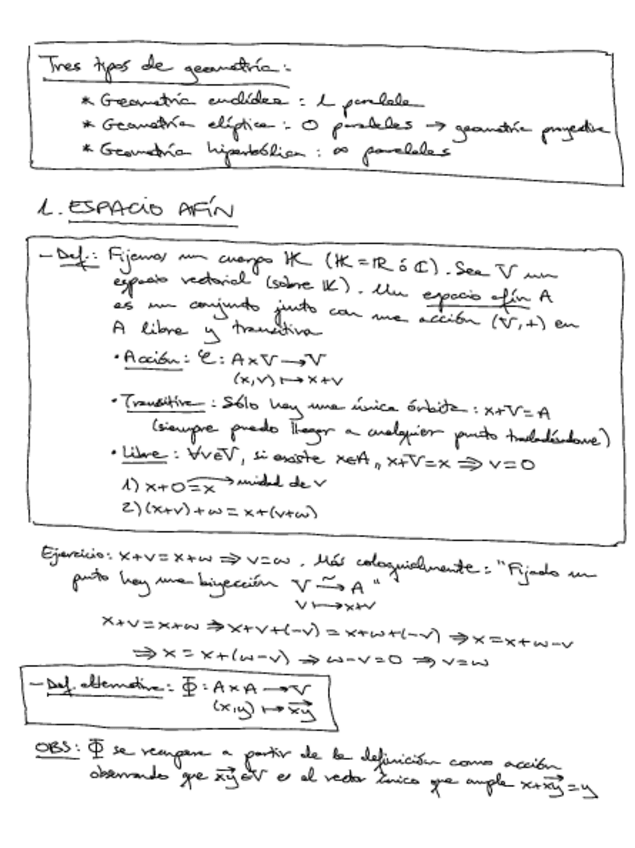 Tres tipos de geometría:
* Geometría euclídea: 1 paralela
* Geometría elíptica: 0 paralelas → geometría proyectiva
* Geometría hiperbólica: ∞ paralelas
1. ESPACIO AFÍN
- Def.: Fijemos un cuerpo 𝕂 (𝕂 = ℝ ó ℂ). Sea V un
espacio vectorial (sobre 𝕂). Un espacio afín A
es un conjunto junto con una acción (V,+) en
A libre y transitiva
• Acción: φ: A×V → V
(x,v) ↦ x+v
• Transitiva: Sólo hay una única órbita: x+V=A
(siempre puedo llegar a cualquier punto trasladándome)
• Libre: ∀v∈V, si existe x∈A,, x+V=x ⇒ v=0
1) x+0=x → unidad de V
2) (x+v)+w = x+(v+w)
Ejercicio: x+v=x+w ⇒ v=w. Más coloquialmente: "Fijado un
punto hay una biyección V ⥲ A"
v ↦ x+v
x+v=x+w ⇒ x+v+(-v) = x+w+(-v) ⇒ x=x+w-v
⇒ x = x+(w-v) ⇒ w-v=0 ⇒ v=w
- Def. alternativa: Φ: A×A → V
(x,y) ↦ x⃗y⃗
OBS: Φ se recupera a partir de la definición como acción
observando que x⃗y⃗∈V es el vector único que cumple x+x⃗y⃗=y